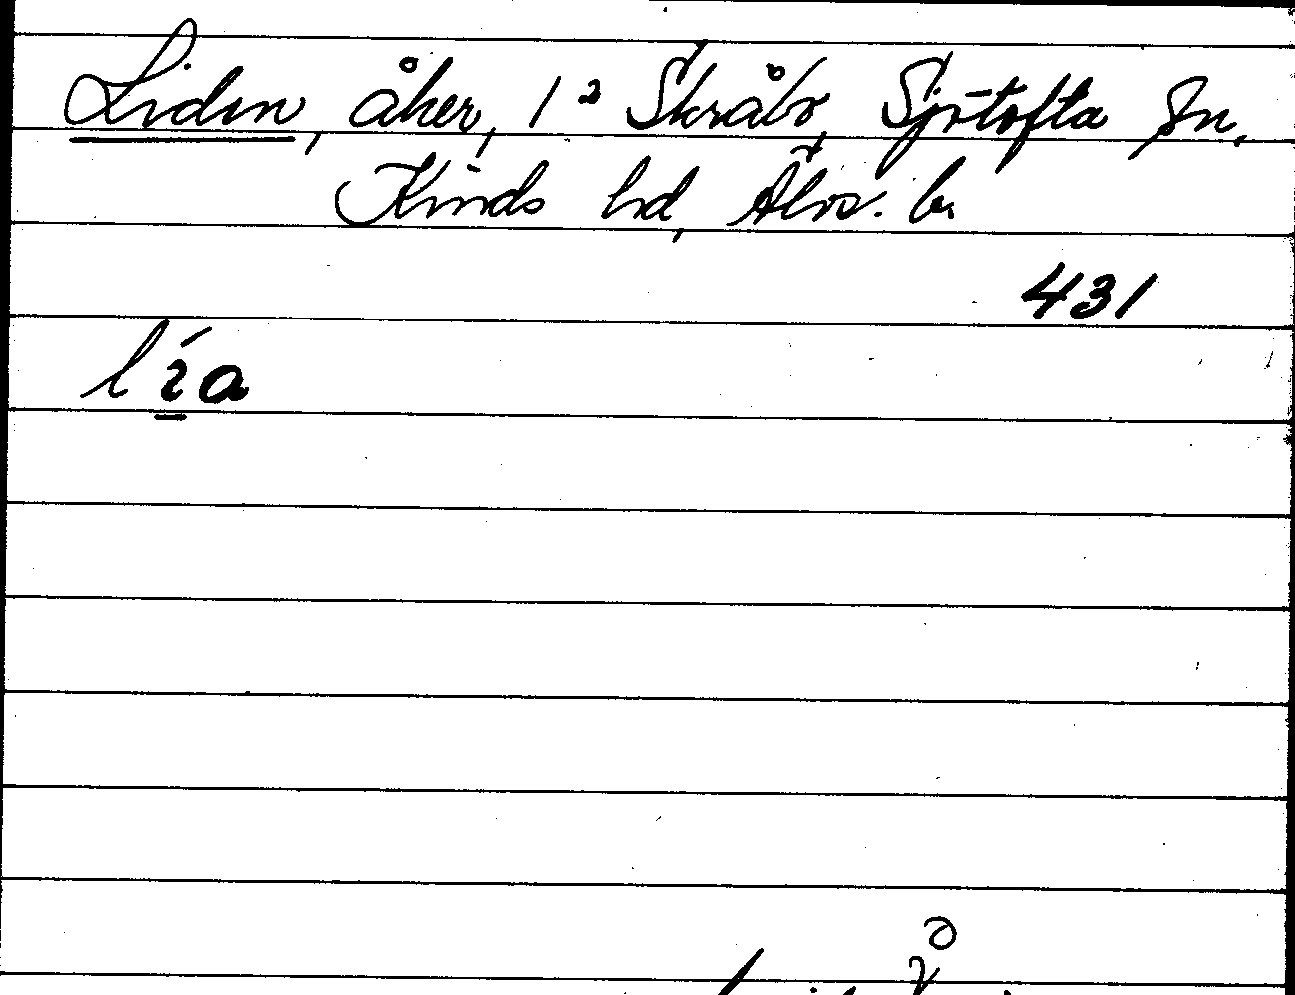 Liden, åker, 1² Skråbo, Sjötofta sn,
Kinds hd, Älvs. l.
431
lıa